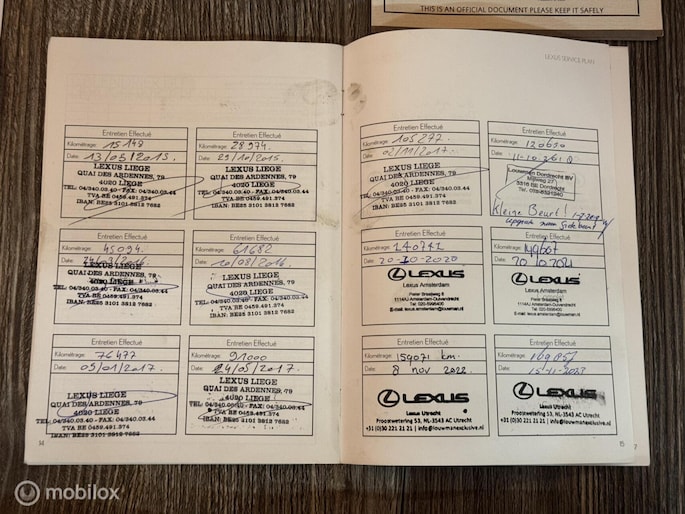 THIS IS AN OFFICIAL DOCUMENT PLEASE KEEP IT SAFELY
LEXUS SERVICE PLAN
Entretien Effectué
Kilométrage: 15148
Date: 13/05/2013.
LEXUS LIEGE
QUAI DES ARDENNES, 79
4020 LIEGE
TEL: 04/340.03.40 - FAX: 04/340.03.44
TVA BE 0459.491.374
IBAN: BE25 3101 3812 7682
Entretien Effectué
Kilométrage: 28.974.
Date: 29/10/2015.
LEXUS LIEGE
QUAI DES ARDENNES, 79
4020 LIEGE
TEL: 04/340.03.40 - FAX: 04/340.03.44
TVA BE 0459.491.374
IBAN: BE25 3101 3812 7682
Entretien Effectué
Kilométrage: 45094.
Date:
LEXUS LIEGE
QUAI DES ARDENNES, 79
4020 LIEGE
TEL: 04/340.03.40 - FAX: 04/340.03.44
TVA BE 0459.491.374
IBAN: BE25 3101 3812 7682
Entretien Effectué
Kilométrage: 61682
Date: 10/08/2016.
LEXUS LIEGE
QUAI DES ARDENNES, 79
4020 LIEGE
TEL: 04/340.03.40 - FAX: 04/340.03.44
TVA BE 0459.491.374
IBAN: BE25 3101 3812 7682
Entretien Effectué
Kilométrage: 76477
Date: 05/01/2017.
LEXUS LIEGE
QUAI DES ARDENNES, 79
4020 LIEGE
TEL: 04/340.03.40 - FAX: 04/340.03.44
TVA BE 0459.491.374
IBAN: BE25 3101 3812 7682
Entretien Effectué
Kilométrage: 91000
Date: 24/05/2017.
LEXUS LIEGE
QUAI DES ARDENNES, 79
4020 LIEGE
TEL: 04/340.03.40 - FAX: 04/340.03.44
TVA BE 0459.491.374
IBAN: BE25 3101 3812 7682
14
Entretien Effectué
Kilométrage: 105277
Date: 02/11/2017.
LEXUS LIEGE
QUAI DES ARDENNES, 79
4020 LIEGE
TEL: 04/340.03.40 - FAX: 04/340.03.44
TVA BE 0459.491.374
IBAN: BE25 3101 3812 7682
Entretien Effectué
Kilométrage: 120650
Date:
Dordrecht BV
Mijlweg
3316 BE Dordrecht
Kleine Beurt
Entretien Effectué
Kilométrage: 140741
Date: 20-10-2020
LEXUS
Lexus Amsterdam
1114AJ Amsterdam-Duivendrecht
Tel. 020-5996400
E-mail: lexus.amsterdam@louwman.nl
Entretien Effectué
Kilométrage:
Date:
LEXUS
Lexus Amsterdam
1114AJ Amsterdam-Duivendrecht
Tel. 020-5996400
E-mail: lexus.amsterdam@louwman.nl
Entretien Effectué
Kilométrage: 159071 km.
Date: 8 nov 2022.
LEXUS
Lexus Utrecht
Proostwetering 53, NL-3543 AC Utrecht
+31 (0)30 221 21 21 | info@louwmanexclusive.nl
Entretien Effectué
Kilométrage:
Date: 15-11-2023
LEXUS
Lexus Utrecht
Proostwetering 53, NL-3543 AC Utrecht
+31 (0)30 221 21 21 | info@louwmanexclusive.nl
15
7
mobilox